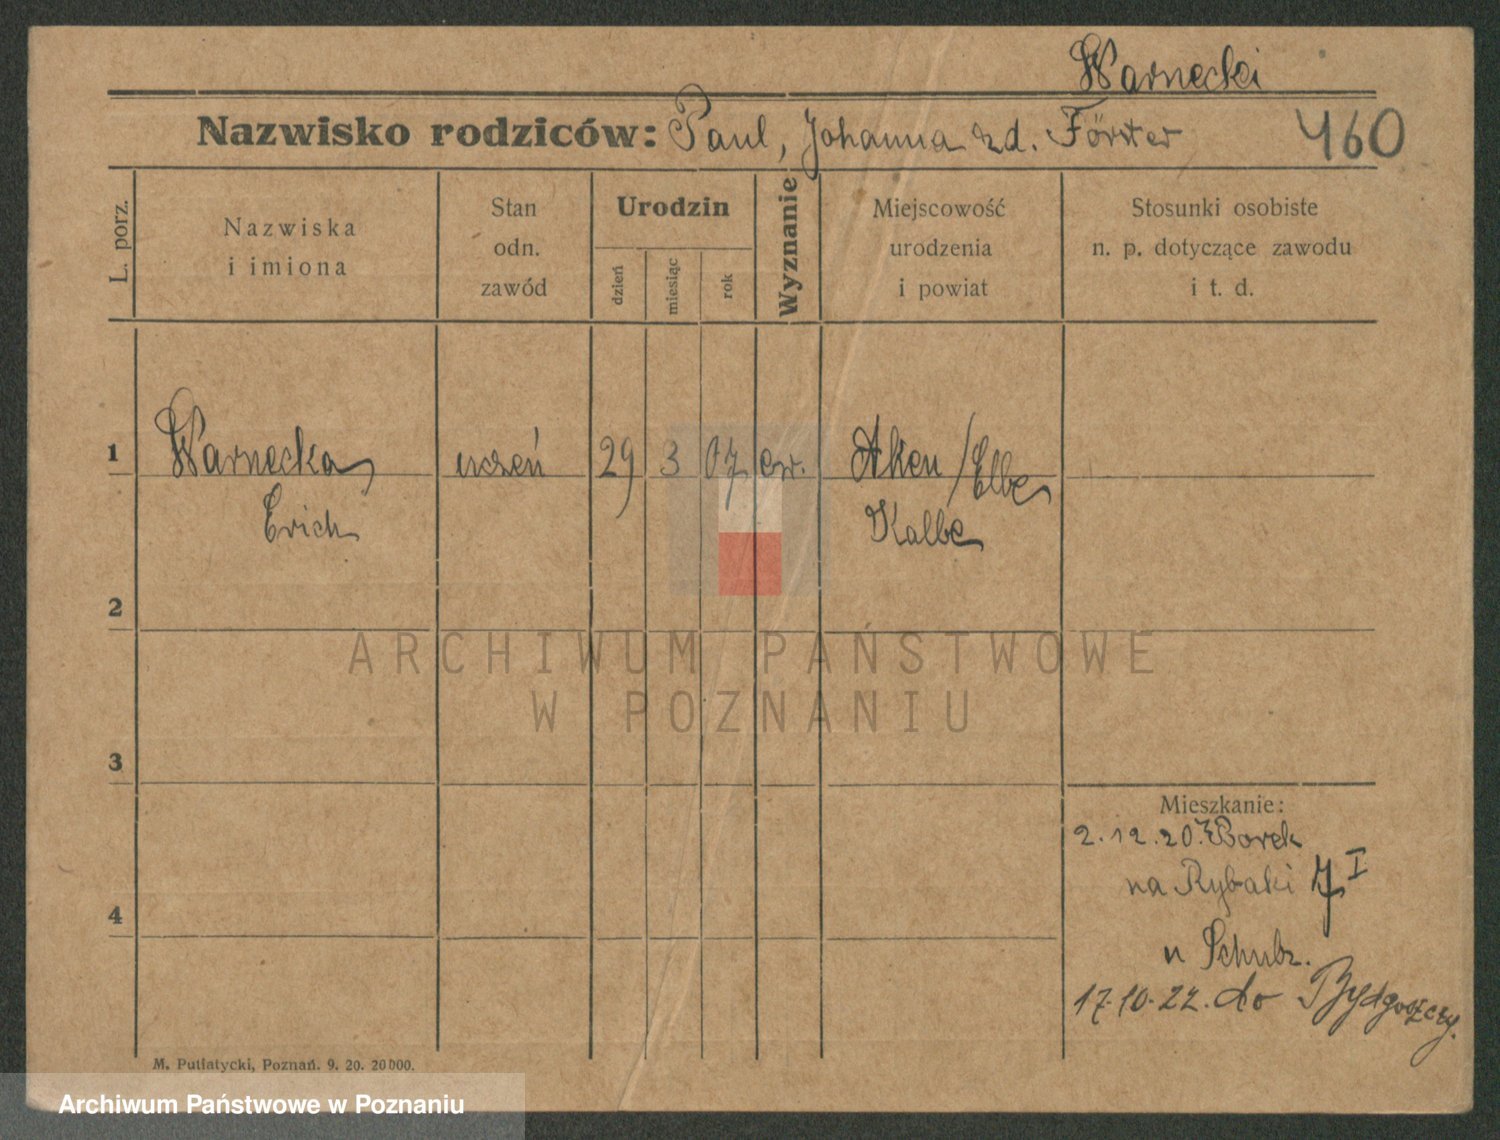 Warnecki
Nazwisko rodziców: Paul, Johanna zd. Förster 460
L. porz.
Nazwiska
i imiona
Stan
odn.
zawód
Urodzin
dzień
miesiąc
rok
Wyznanie
Miejscowość
urodzenia
i powiat
Stosunki osobiste
n. p. dotyczące zawodu
i t. d.
1 Warnecka uczeń 29 3 07 ew. Aken/Elbe
Erich Kalbe
2
ARCHIWUM PAŃSTWOWE
W POZNANIU
3
Mieszkanie:
2.12.20. z Borek
na Rybaki 7 I
4
u Schulz.
17.10.22. do Bydgoszczy.
M. Putiatycki, Poznań. 9. 20. 20000.
Archiwum Państwowe w Poznaniu